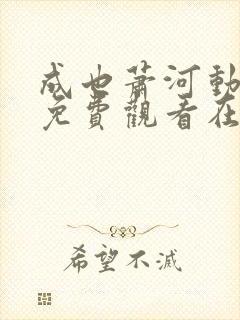 成也蕭河動
免費觀看在
希望不滅